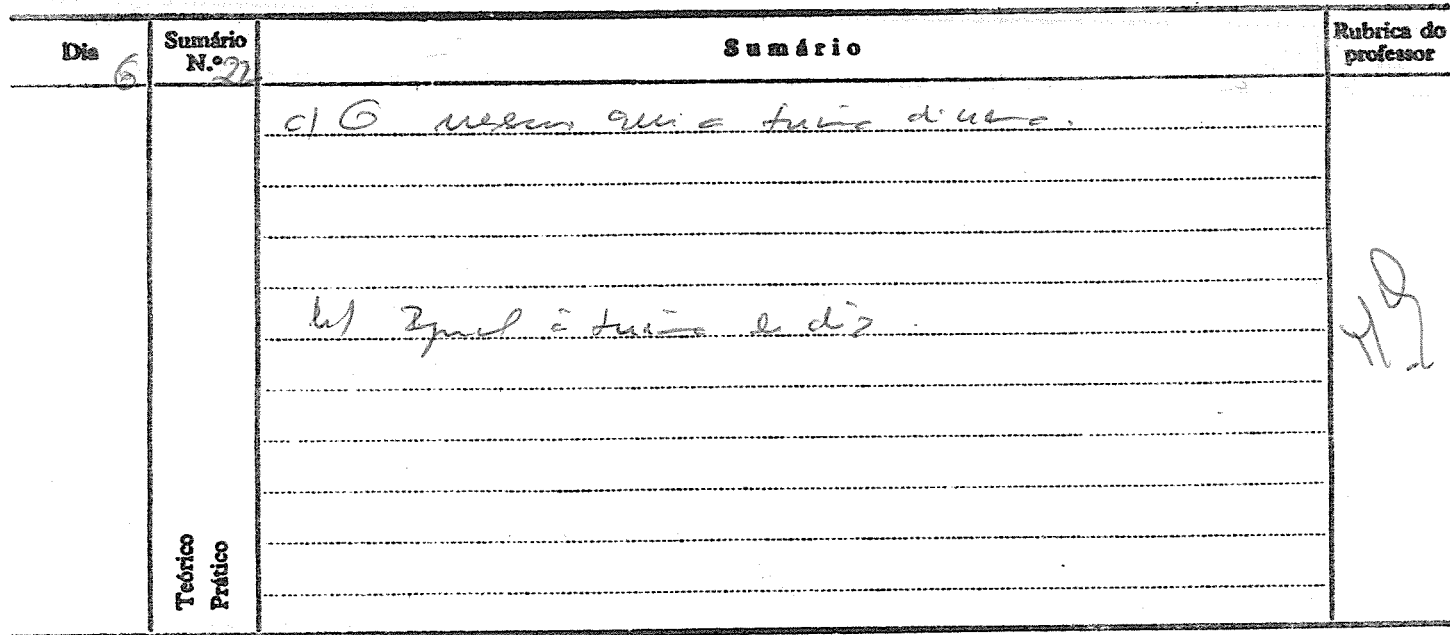 Dia 6
Sumário N.º 22
Sumário
Rubrica do professor
c) O mesmo que a turma diurna.
b) Igual à turma de dia.
Teórico
Prático